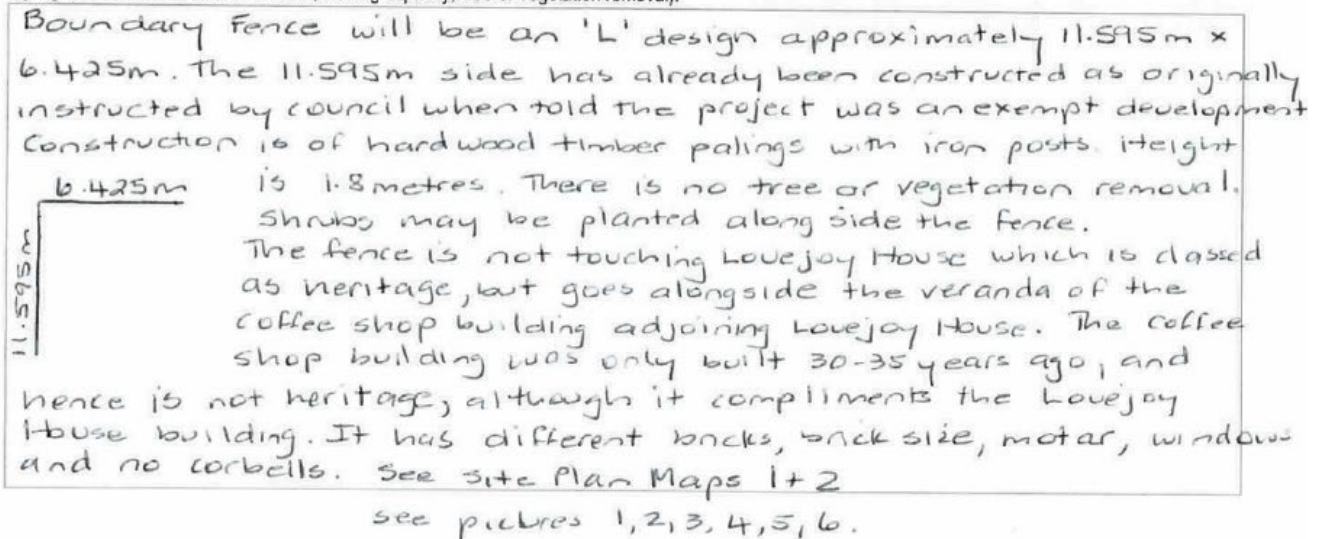 Boundary Fence will be an 'L' design approximately 11.595m x
6.425m. The 11.595m side has already been constructed as originally
instructed by council when told the project was an exempt development
Construction is of hardwood timber palings with iron posts. Height
6.425m
is 1.8 metres. There is no tree or vegetation removal.
Shrubs may be planted along side the fence.
11.595m
The fence is not touching Lovejoy House which is classed
as heritage, but goes alongside the veranda of the
coffee shop building adjoining Lovejoy House. The coffee
shop building was only built 30-35 years ago, and
hence is not heritage, although it compliments the Lovejoy
House building. It has different bricks, brick size, motar, windows
and no corbells. See Site Plan Maps 1 + 2
see pictures 1, 2, 3, 4, 5, 6.